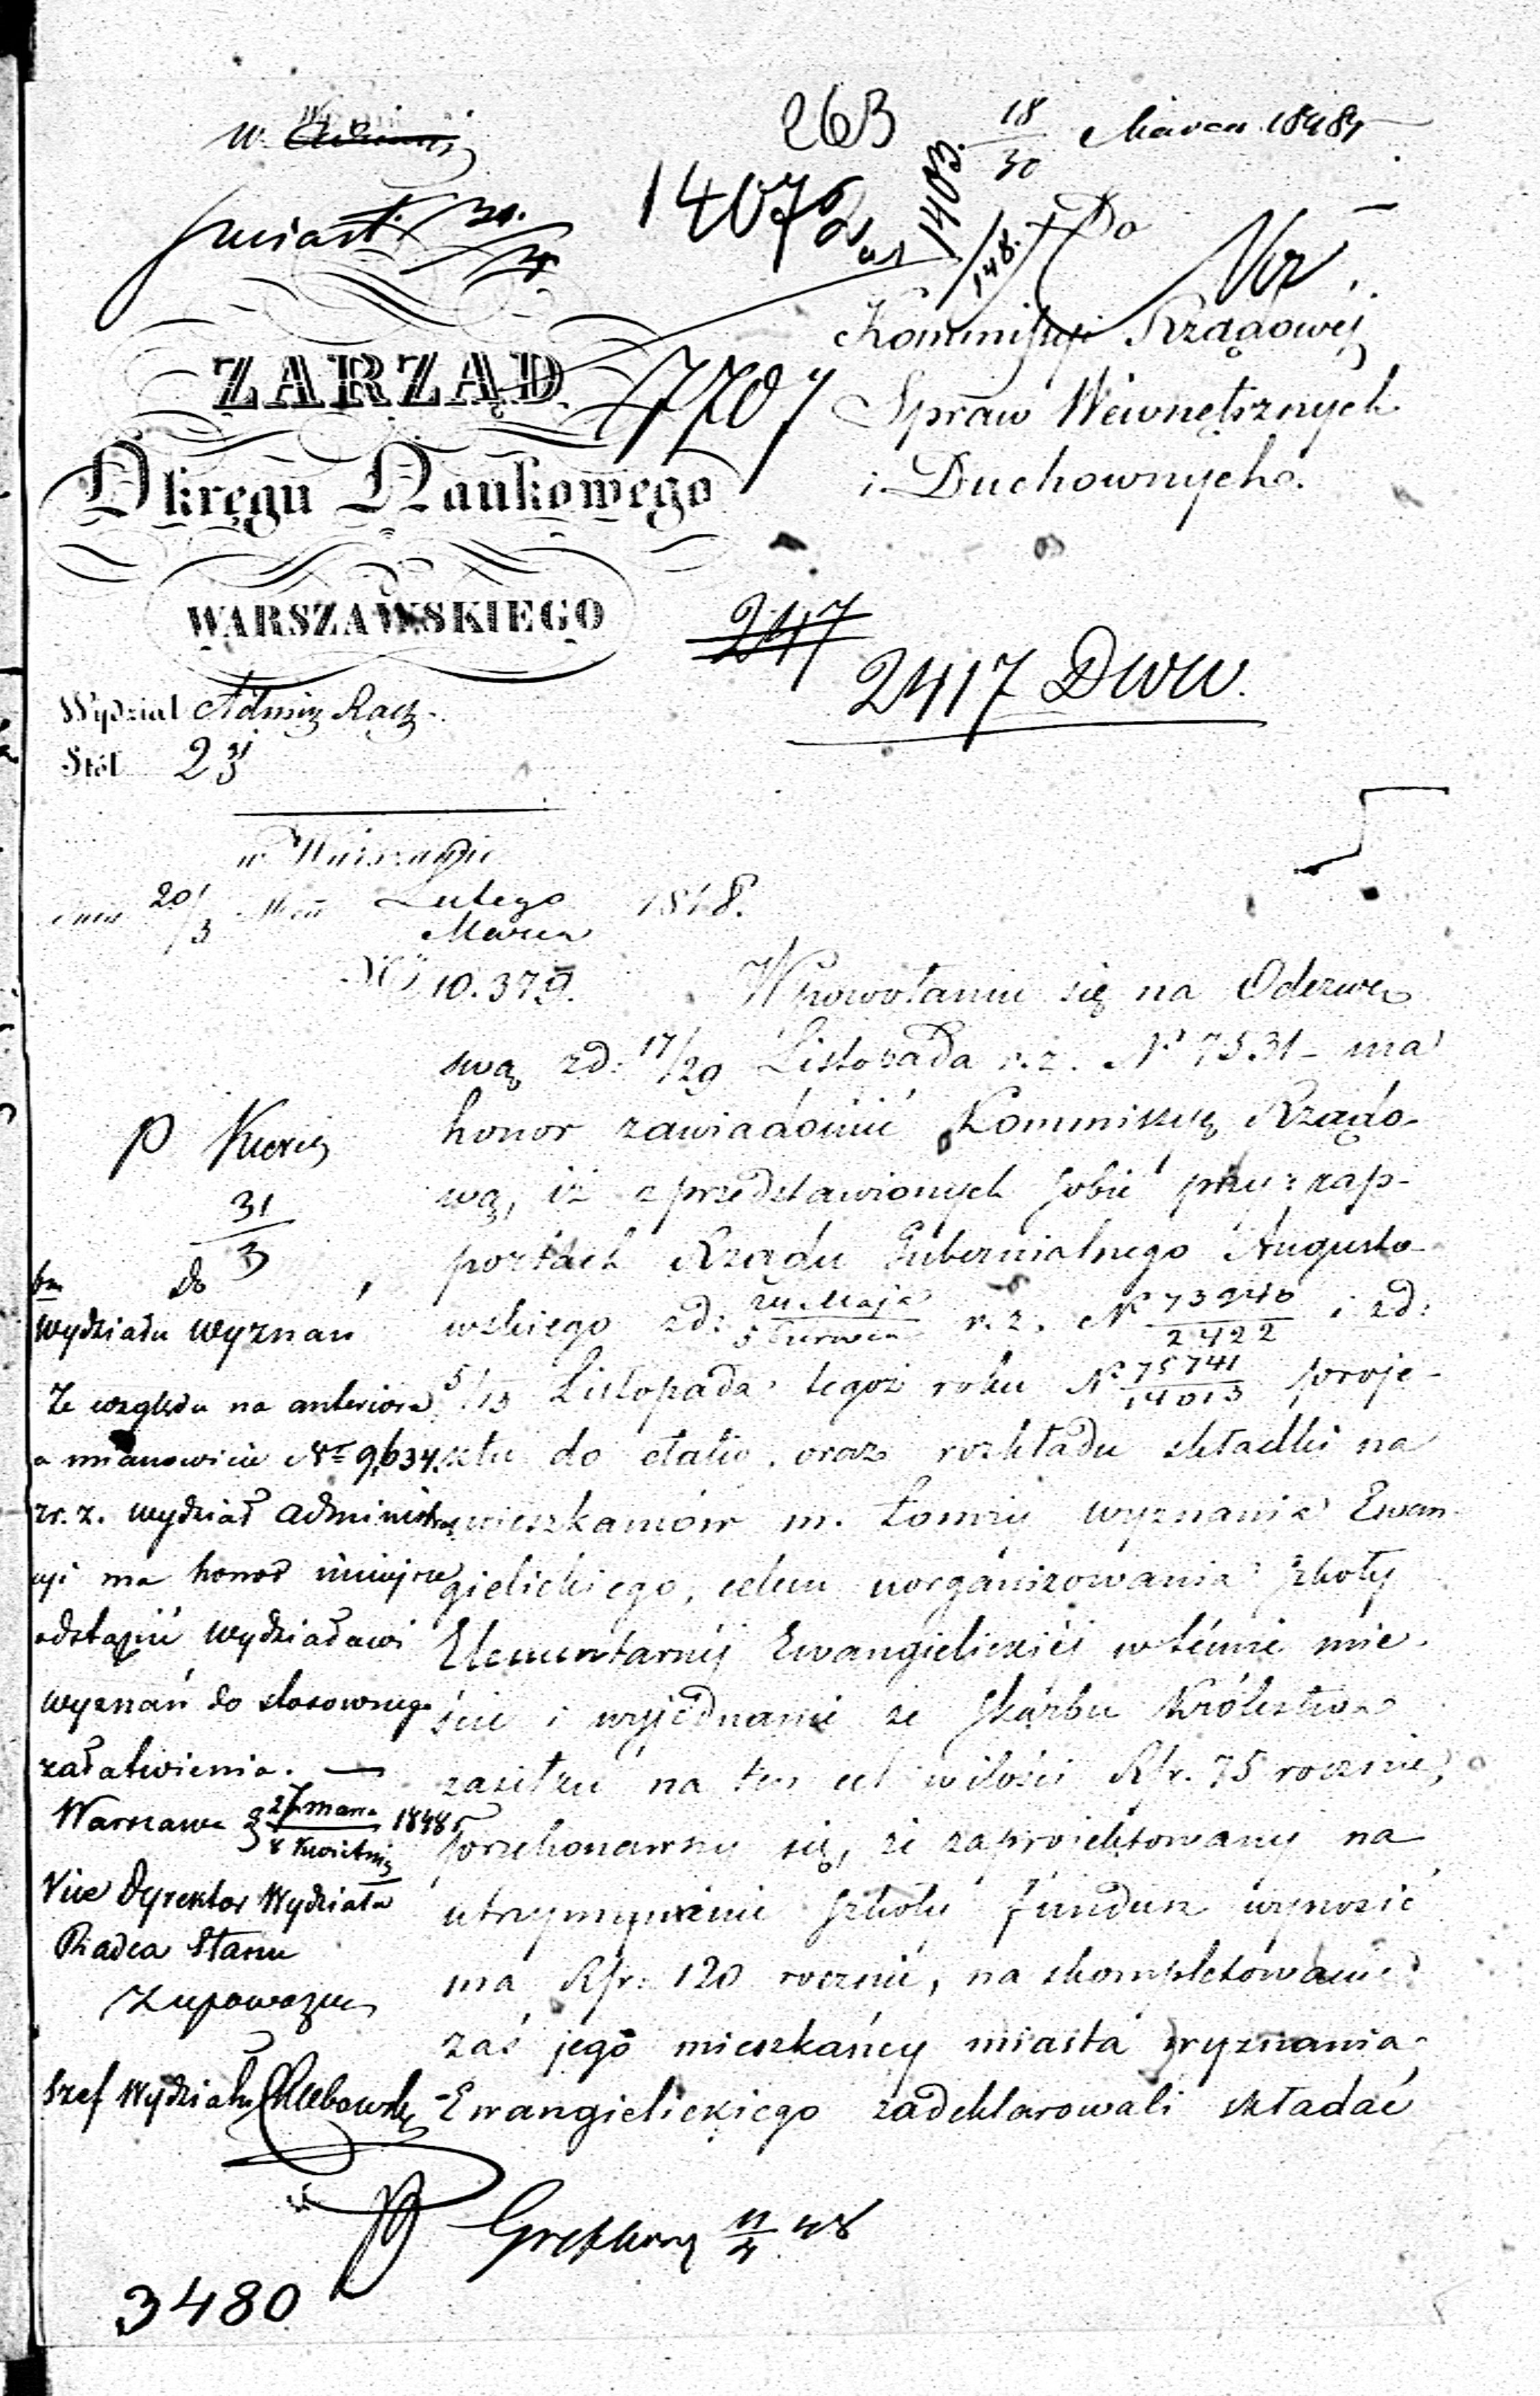 263
18/30 Marca 1848
14076
1403
148
Do
Kommissyi Rządowéj
Spraw Wewnętrznych
i Duchownych.
ZARZĄD
Okręgu Naukowego
WARSZAWSKIEGO
7707
247
2417 DWW.
Wydział
Stół 2
w Warszawie
dnia 20/3 Lutego/Marca 1848.
No 10.379.
W powołaniu się na Odezwę
swą zd: 17/29 Listopada r. z. No 7531 ma
honor zawiadomić Kommissyę Rządo-
wą, iż z przedstawionych sobie przy rap-
portach Rządu Gubernialnego Augusto-
wskiego zd: 24 Maja/5 Czerwca r. z. No 73940/2422 i zd:
Listopada tegoż roku No 75741/14013 proje-
ktu do etatu, oraz rozkładu składki na
mieszkańców m. Łomży wyznania Ewan-
gielickiego, celem uorganizowania szkoły
Elementarnéj Ewangielickiéj w témże mie-
ście i wyjednanie ze Skarbu Królestwa
zasiłku na ten cel w ilości Rsr. 75 rocznie,
przekonawszy się, że zaprojektowany na
utrzymywanie szkoły fundusz wynosić
ma Rsr: 120 rocznie, na skompletowanie
zaś jego mieszkańcy miasta wyznania
Ewangielickiego zadeklarowali składać
P
31/3
do
Wydziału Wyznań
Ze względu na anteriora
a mianowicie No 9,634
zr. z. Wydział Administra
cyi ma honor niniejsze
odstąpić Wydziałowi
Wyznań do stosownego
załatwienia. —
Warszawa d 27 Marca/8 Kwietnia 1848 r.
Vice Dyrektor Wydziału
Radca Stanu
Szef Wydziału
11/4 48
3480